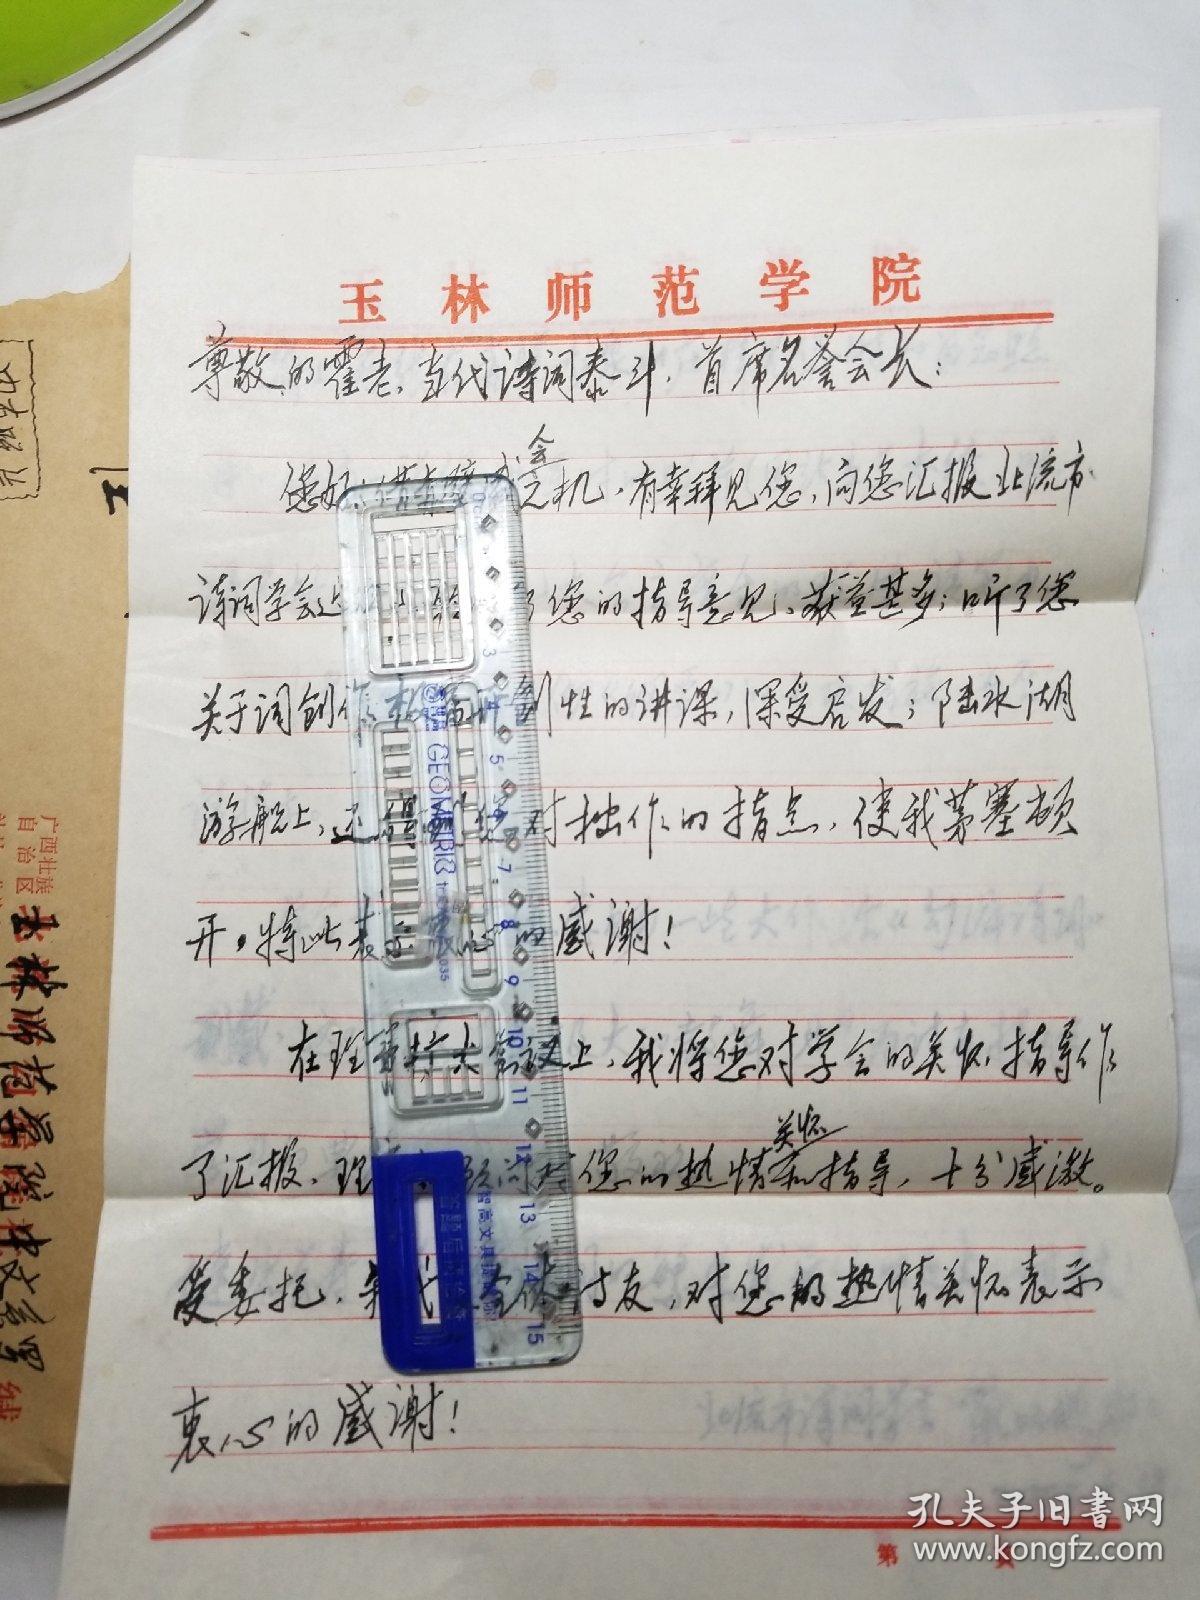 玉林师范学院
尊敬的霍老、当代诗词泰斗、首席名誉会长：
会
您好！机，有幸拜见您，向您汇报北流市
诗词学会了您的指导意见，获益甚多；听了您
关于词创作性的讲课，深受启发；陆水湖
游船上，还得对拙作的指点，使我茅塞顿
开。特此表感谢！
在理事扩大会议上，我将您对学会的关怀指导作
关怀
了汇报，理您的热情和指导，十分感激。
受委托，诗友，对您的热情关怀表示
衷心的感谢！
第 页
GEOMETRIC
3
5
7
8
9
10
11
12
13
14
15
广西壮族
自治区
玉林师范学院
孔夫子旧书网
www.kongfz.com